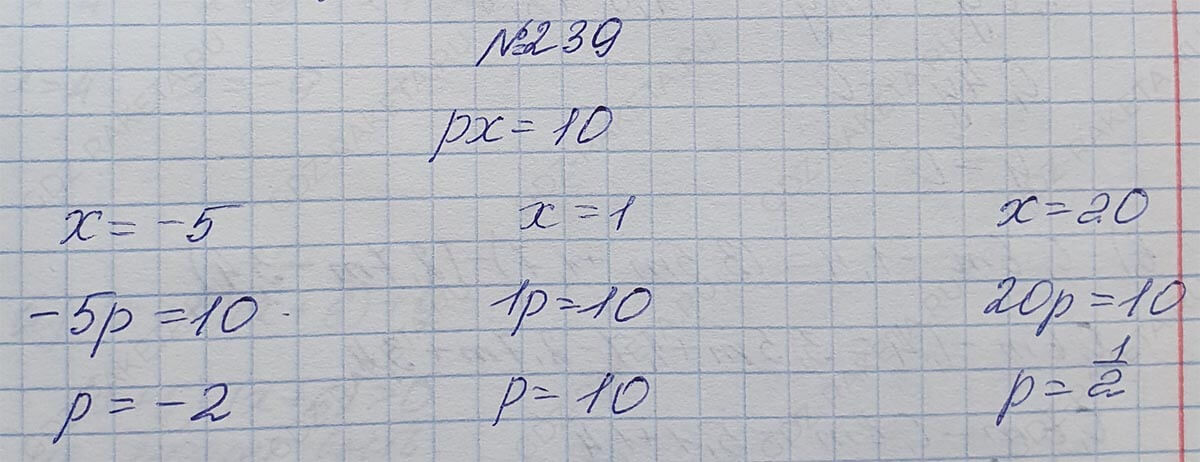 №239
px = 10
x = -5 x = 1 x = 20
-5p = 10 1p = 10 20p = 10
p = -2 p = 10 p = 1/2